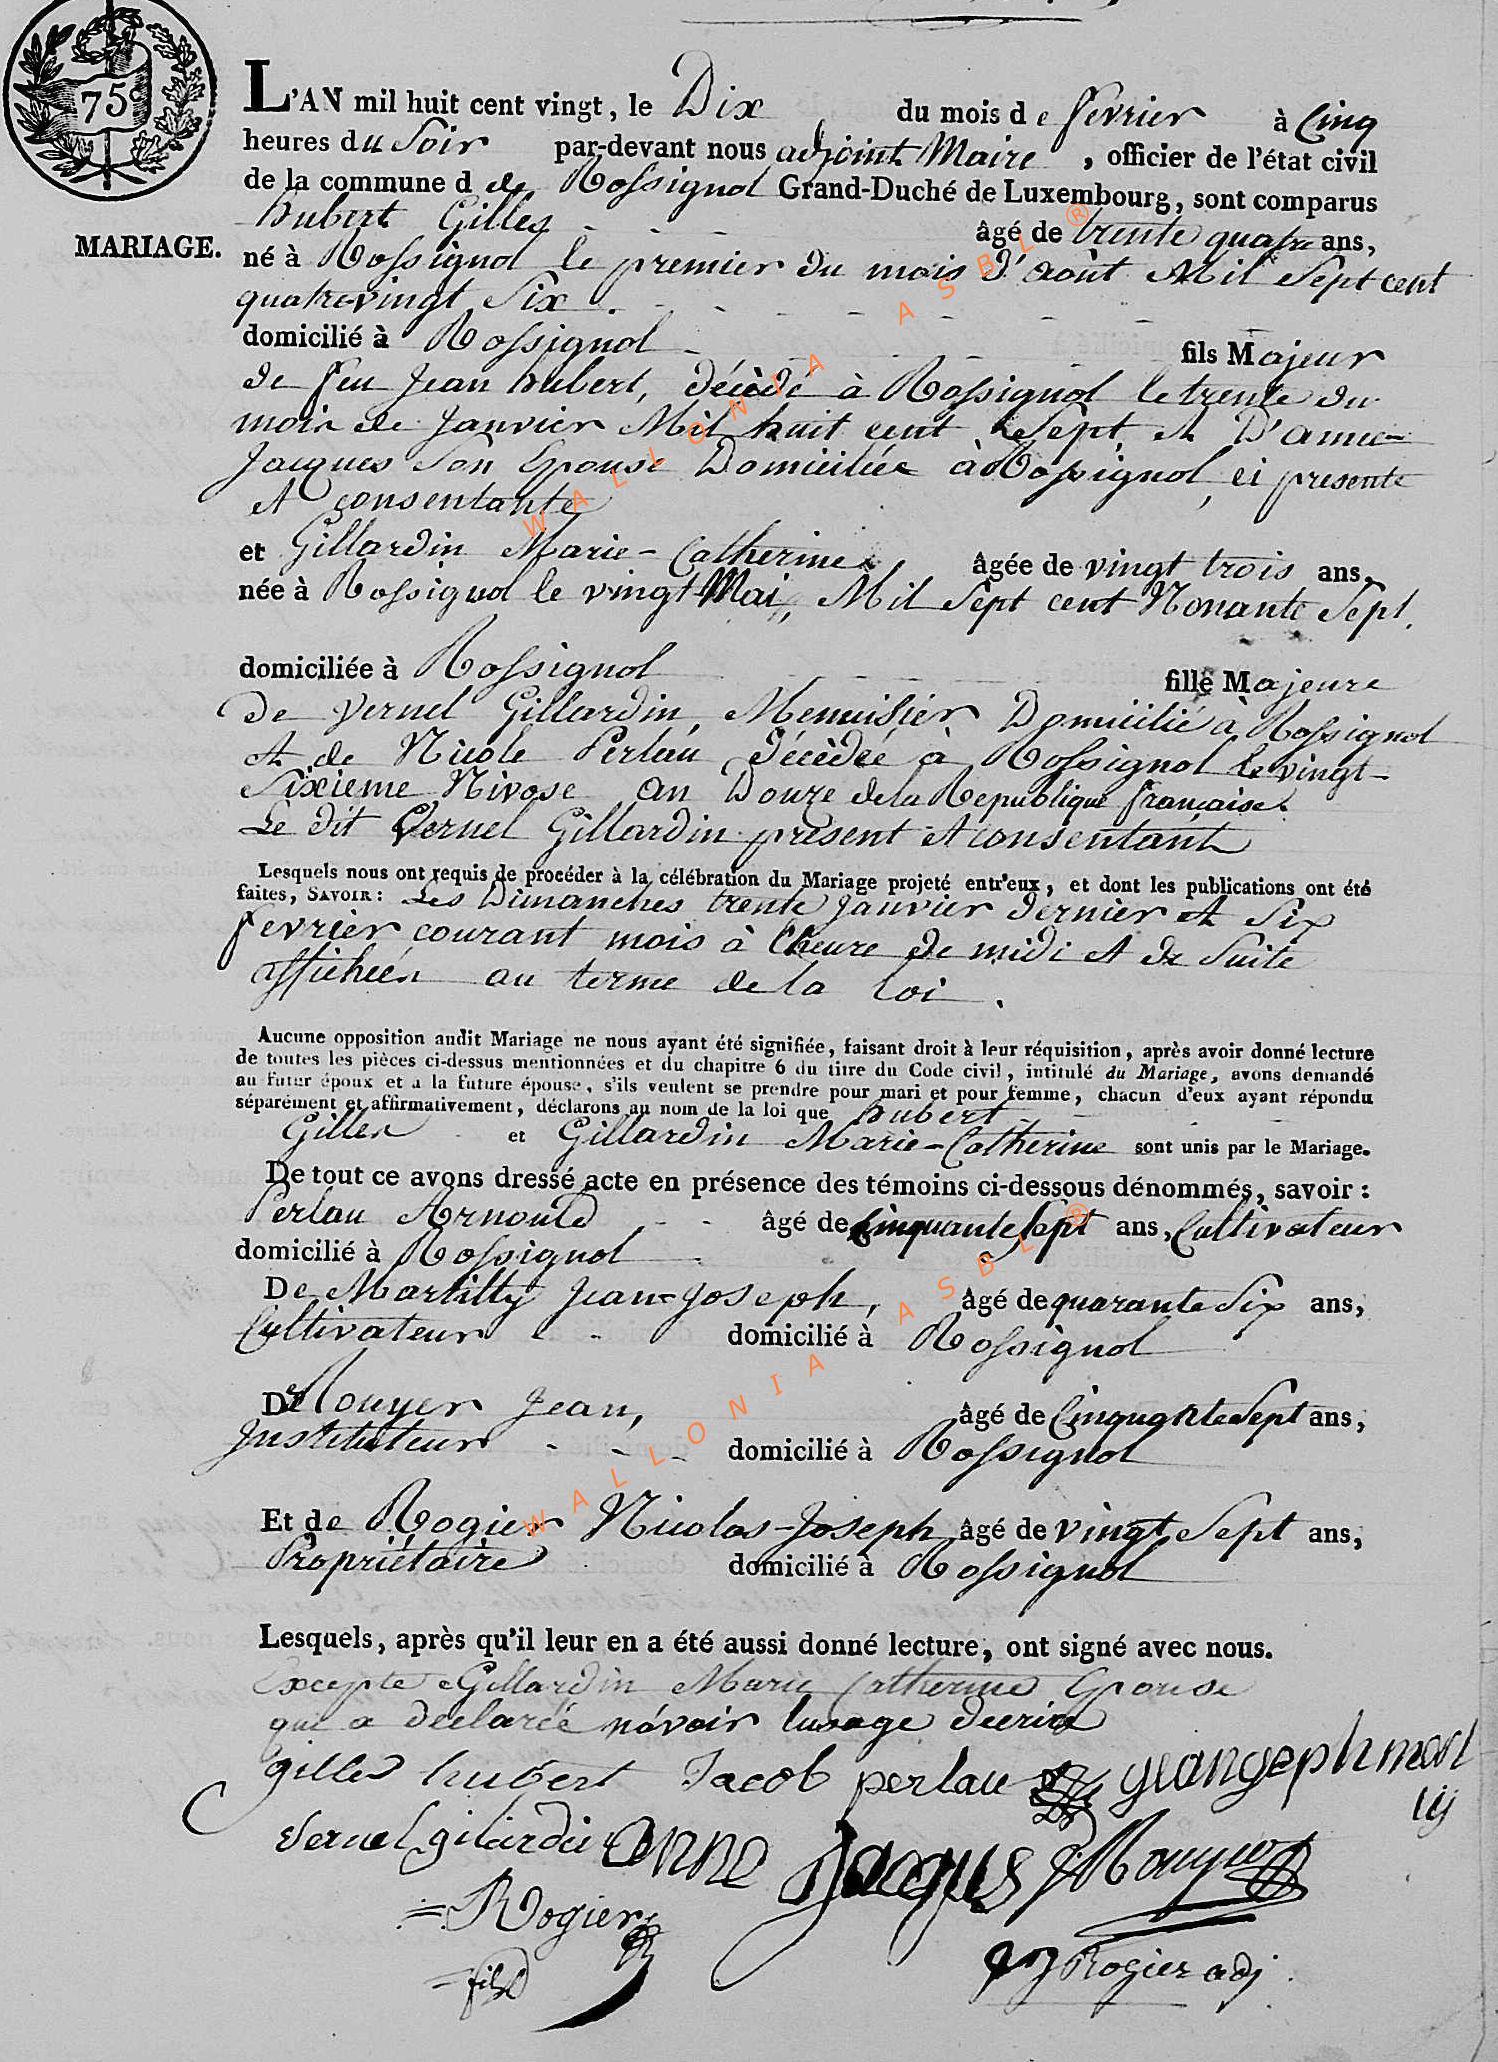 75c
L'AN mil huit cent vingt, le Dix du mois de fevrier à Cinq
heures du Soir par-devant nous adjoint Maire, officier de l'état civil
de la commune d de Rossignol Grand-Duché de Luxembourg, sont comparus
hubert Gilles âgé de trente quatre ans,
MARIAGE.
né à Rossignol le premier du mois d'août Mil Sept cent
quatre-vingt Six.
domicilié à Rossignol fils Majeur
de feu Jean hubert, décèdé à Rossignol le trente du
mois de Janvier Mil huit cent Sept, et D'anne
Jacques Son Epouse Domiciliée à Rossignol, ci presente
et consentante
et Gillardin Marie-Catherine âgée de vingt trois ans,
née à Rossignol le vingt Mai, Mil Sept cent Nonante Sept.
domiciliée à Rossignol fille Majeure
de Vernel Gillardin, Menuisier Domicilié à Rossignol
et de Nicole Perlau décèdée à Rossignol le vingt-
Sixieme Nivose an Douze de la Republique française.
Le dit Vernel Gillardin present et consentant
Lesquels nous ont requis de procéder à la célébration du Mariage projeté entr'eux, et dont les publications ont été
faites, SAVOIR: Les Dimanches trente Janvier dernier et Six
fevrier courant mois à l'heure de midi et de Suite
affichées au terme de la loi.
Aucune opposition audit Mariage ne nous ayant été signifiée, faisant droit à leur réquisition, après avoir donné lecture
de toutes les pièces ci-dessus mentionnées et du chapitre 6 du titre du Code civil, intitulé du Mariage, avons demandé
au futur époux et a la future épouse, s'ils veulent se prendre pour mari et pour femme, chacun d'eux ayant répondu
séparément et affirmativement, déclarons au nom de la loi que hubert
Gilles et Gillardin Marie-Catherine sont unis par le Mariage.
De tout ce avons dressé acte en présence des témoins ci-dessous dénommés, savoir:
Perlau Arnould âgé de Cinquante Sept ans, Cultivateur
domicilié à Rossignol
De Martilly Jean-Joseph, âgé de quarante Six ans,
Cultivateur domicilié à Rossignol
De Rouyer Jean, âgé de Cinquante Sept ans,
Instituteur domicilié à Rossignol
Et de Rogier Nicolas-Joseph âgé de vingt Sept ans,
Propriétaire domicilié à Rossignol
Lesquels, après qu'il leur en a été aussi donné lecture, ont signé avec nous.
Excepté Gillardin Marie Catherine Epouse
qui a declarée n'avoir lusage decrire
gilles hubert Jacob perlau geangeph mart
lij
Vernel gilardin anne Jacques J Rouyer
Rogier
fils
NJ Rogier adj
WALLONIA ASBL ®
WALLONIA ASBL ®